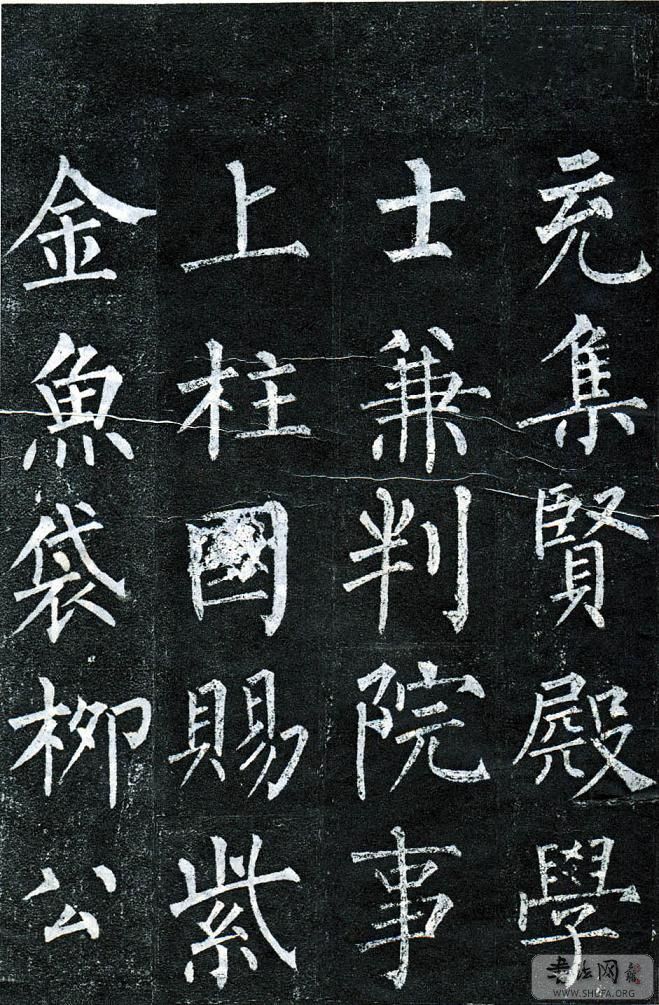 充集賢殿學
士兼判院事
上柱國賜紫
金魚袋柳公
書法网
WWW.SHUFA.ORG